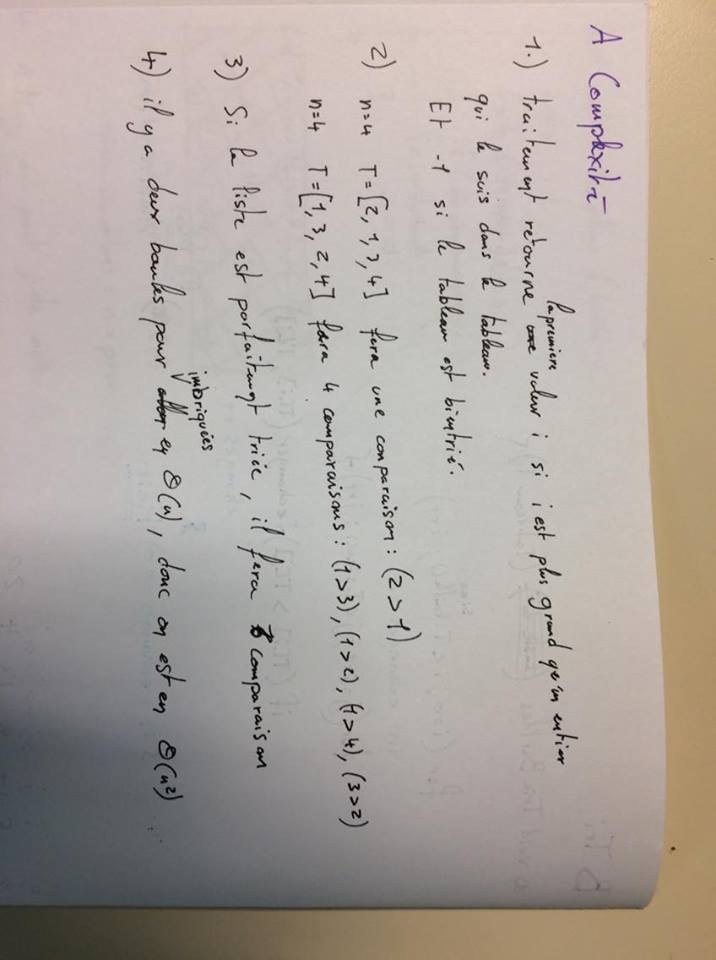 A Complexité
1.) traitement retourne la première valeur i si i est plus grand qu'un entier
qui le suis dans le tableau.
Et -1 si le tableau est bien trié.
2) n=4 T=[2,1,3,4] fera une comparaison : (2>1)
n=4 T=[1,3,2,4] fera 4 comparaisons : (1>3), (1>2), (1>4), (3>2)
3) Si la liste est parfaitement triée, il fera comparaison
4) il y a deux boucles pour imbriquées en Θ(n), donc on est en Θ(n²)